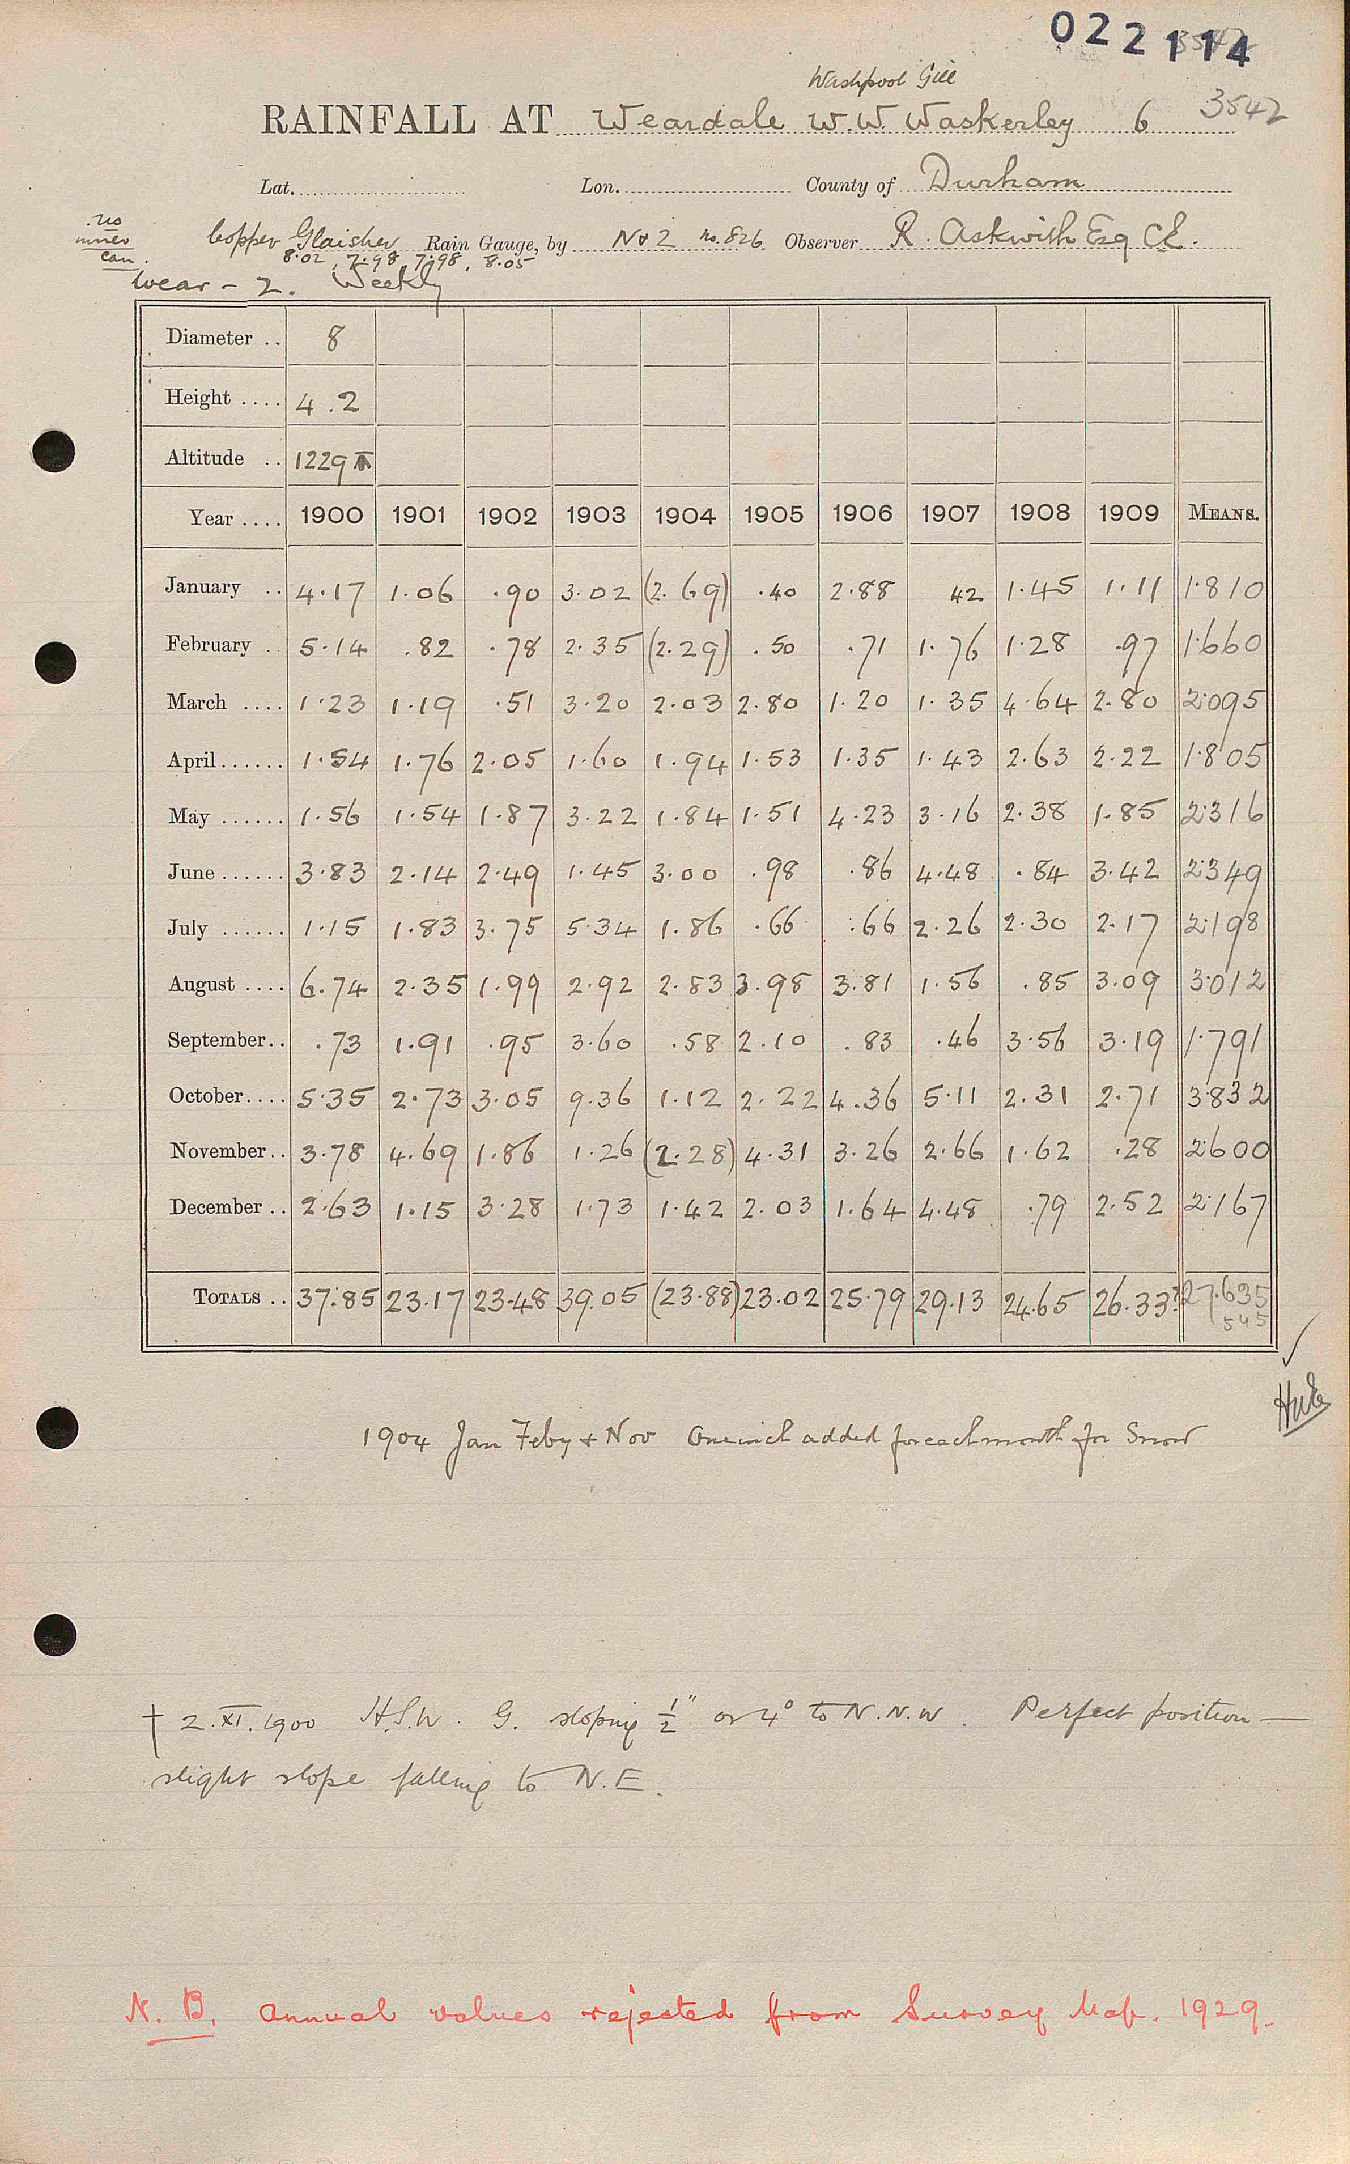 022114
Washpool Gill
RAINFALL AT Weardale W.W. Waskerley 6 3542
Lat. Lon. County of Durham
no
inner
can.
Copper Glaisher Rain Gauge, by N & Z no. 826 Observer R. Askwith Esq CE.
8.02, 7.98, 7.98, 8.05
Wear - 2. Weekly
Diameter .. 8
Height .... 4.2
Altitude .. 1229
Year .... 1900 1901 1902 1903 1904 1905 1906 1907 1908 1909 MEANS.
January .. 4.17 1.06 .90 3.02 (2.69) .40 2.88 42 1.45 1.11 1.810
February .. 5.14 .82 .78 2.35 (2.29) .50 .71 1.76 1.28 .97 1.660
March .... 1.23 1.19 .51 3.20 2.03 2.80 1.20 1.35 4.64 2.80 2.095
April ...... 1.54 1.76 2.05 1.60 1.94 1.53 1.35 1.43 2.63 2.22 1.805
May ...... 1.56 1.54 1.87 3.22 1.84 1.51 4.23 3.16 2.38 1.85 2.316
June ...... 3.83 2.14 2.49 1.45 3.00 .98 .86 4.48 .84 3.42 2.349
July ...... 1.15 1.83 3.75 5.34 1.86 .66 .66 2.26 2.30 2.17 2.198
August .... 6.74 2.35 1.99 2.92 2.83 3.98 3.81 1.56 .85 3.09 3.012
September.. .73 1.91 .95 3.60 .58 2.10 .83 .46 3.56 3.19 1.791
October.... 5.35 2.73 3.05 9.36 1.12 2.22 4.36 5.11 2.31 2.71 3.832
November.. 3.78 4.69 1.86 1.26 (2.28) 4.31 3.26 2.66 1.62 .28 2.600
December .. 2.63 1.15 3.28 1.73 1.42 2.03 1.64 4.48 .79 2.52 2.167
TOTALS .. 37.85 23.17 23.48 39.05 (23.88) 23.02 25.79 29.13 24.65 26.33? 27.635
545
1904 Jan Feby & Nov One inch added for each month for Snow
† 2.XI.1900 H.S.W. G. sloping 1/2" or 4° to N.N.W. Perfect position —
slight slope falling to N.E.
N.B. Annual values rejected from Survey Map. 1929.